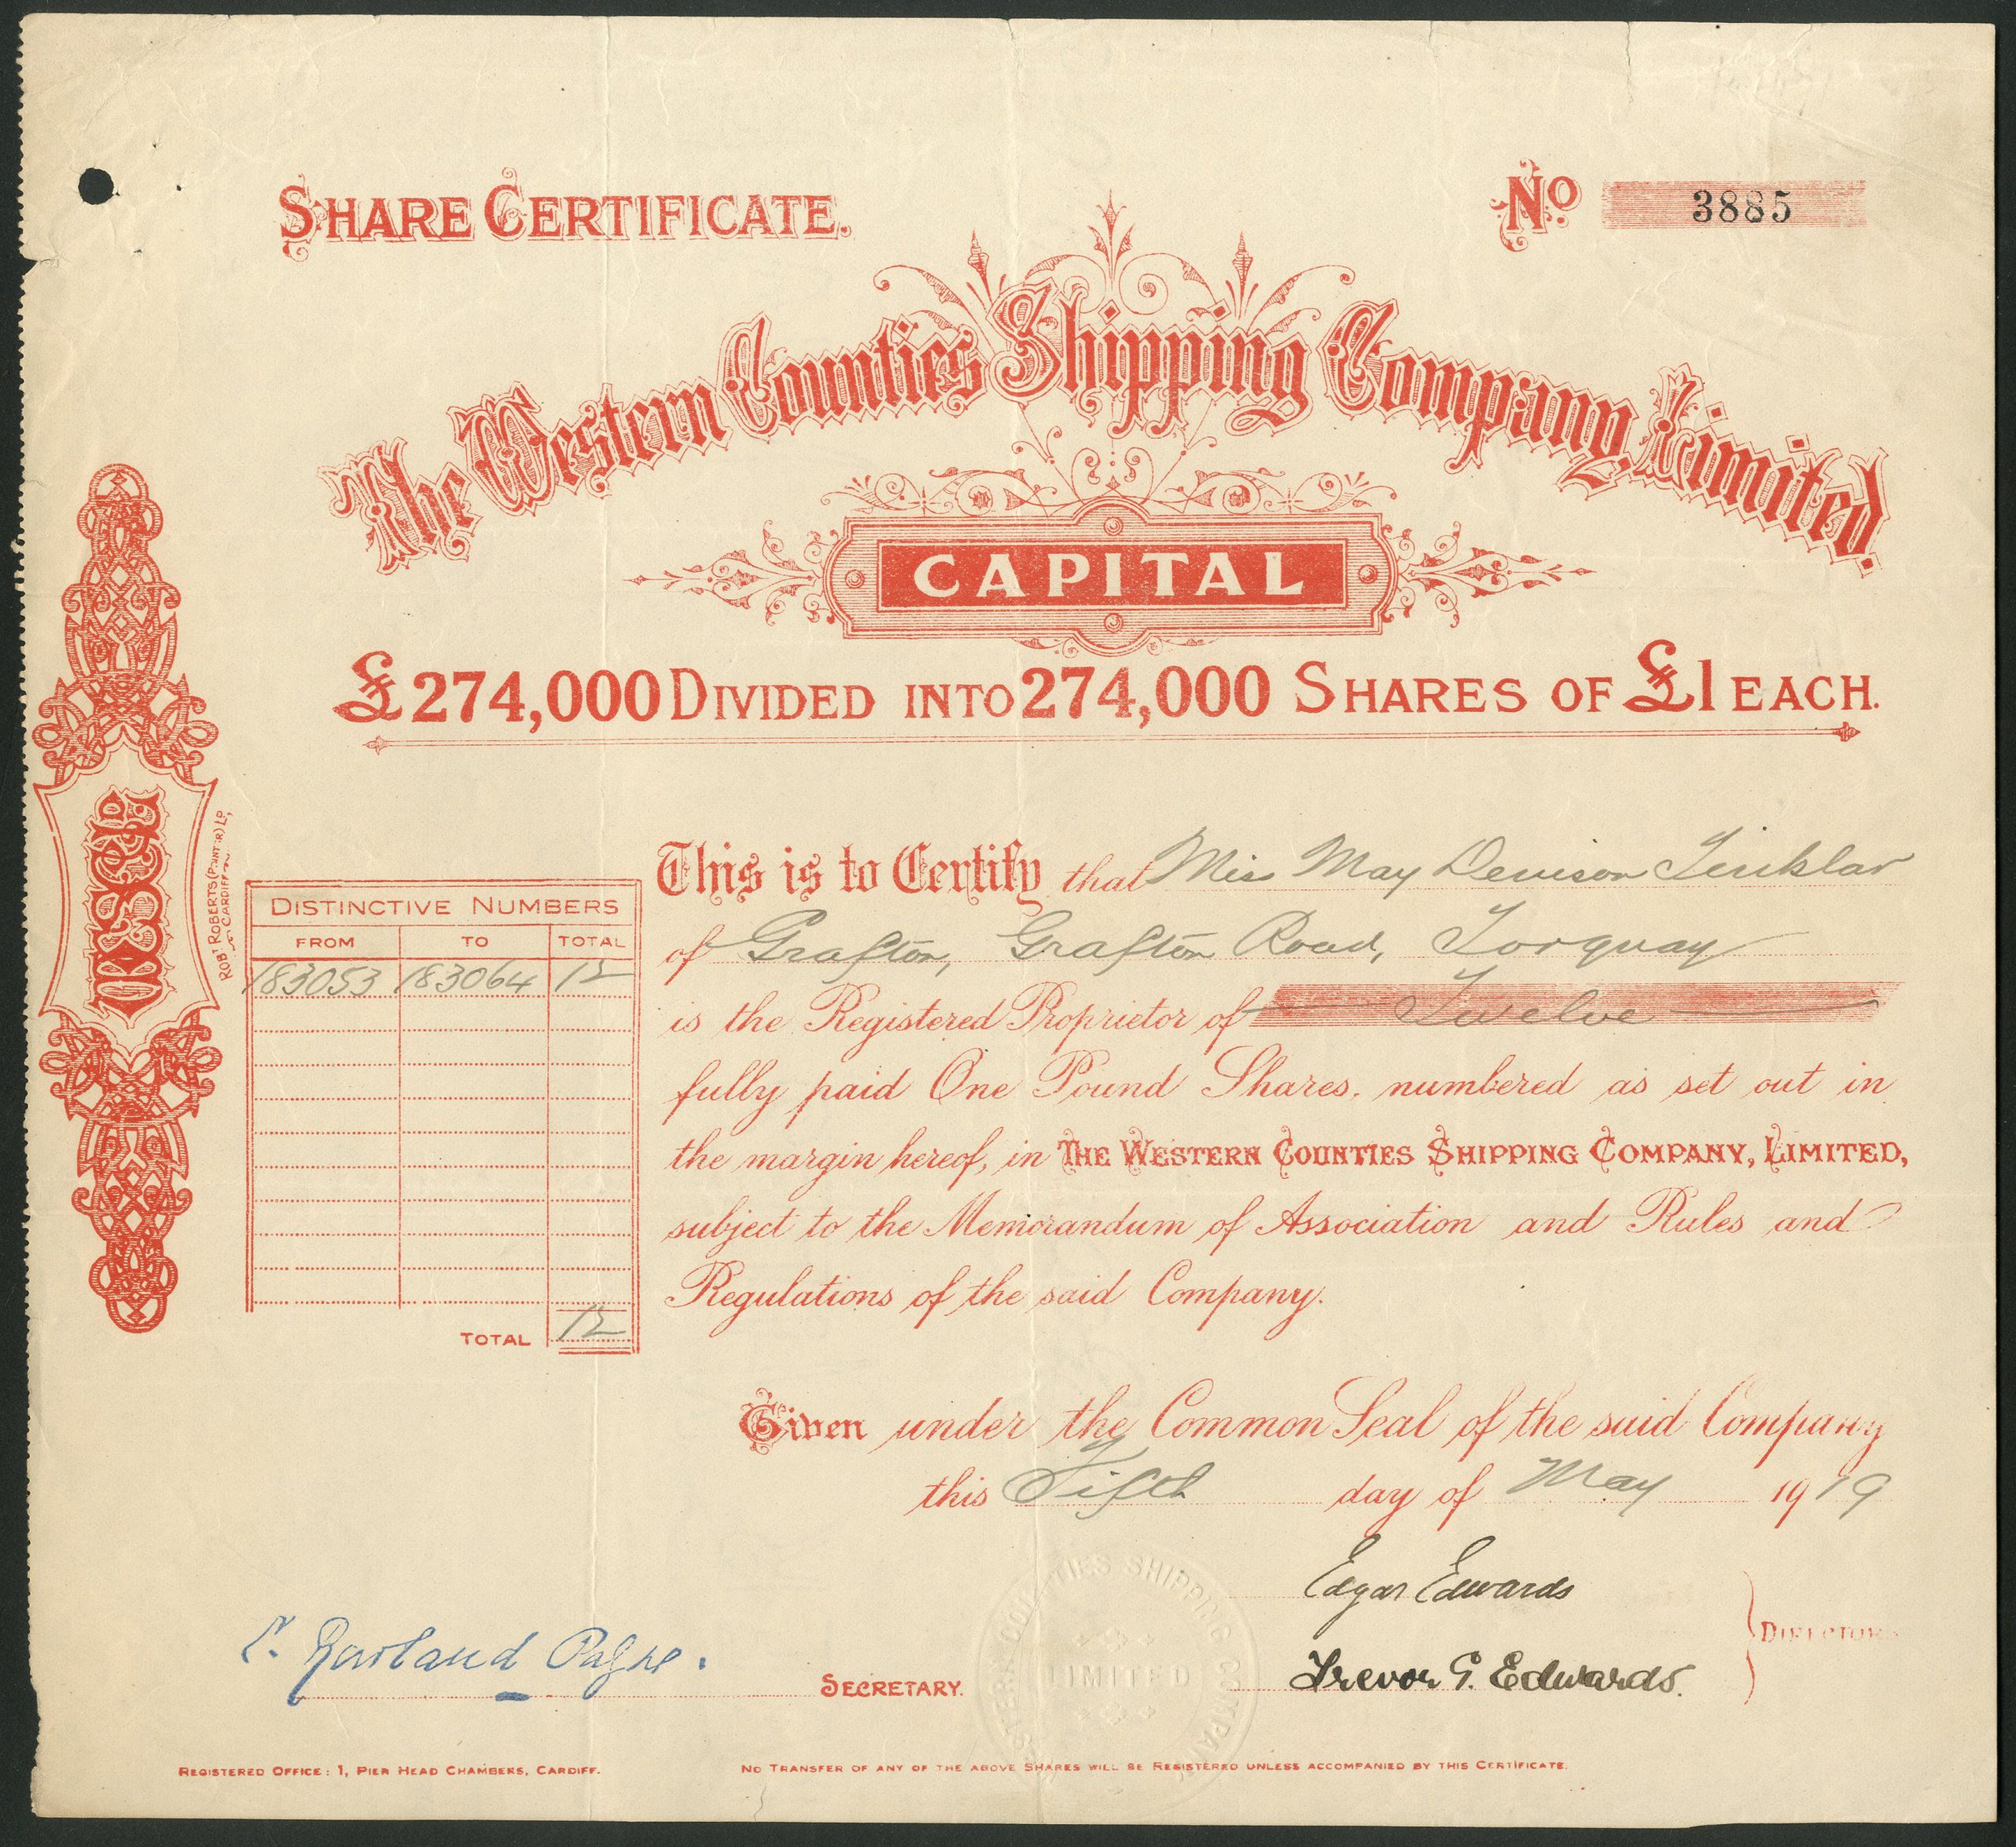 SHARE CERTIFICATE.
No 3885
The Western Counties Shipping Company, Limited.
CAPITAL
£274,000 DIVIDED INTO 274,000 SHARES OF £1 EACH.
ROBT ROBERTS (PRINTER) LD,
CARDIFF
DISTINCTIVE NUMBERS
FROM TO TOTAL
183053 183064 12
TOTAL 12
This is to Certify that Miss May Denison Tinklar
of Grafton, Grafton Road, Torquay
is the Registered Proprietor of Twelve
fully paid One Pound Shares, numbered as set out in
the margin hereof, in THE WESTERN COUNTIES SHIPPING COMPANY, LIMITED,
subject to the Memorandum of Association and Rules and
Regulations of the said Company.
Given under the Common Seal of the said Company
this Fifth day of May 1919
Edgar Edwards
Trevor G. Edwards.
DIRECTORS
Rowland
SECRETARY.
WESTERN COUNTIES SHIPPING COMPANY
LIMITED
REGISTERED OFFICE: 1, PIER HEAD CHAMBERS, CARDIFF.
NO TRANSFER OF ANY OF THE ABOVE SHARES WILL BE REGISTERED UNLESS ACCOMPANIED BY THIS CERTIFICATE.